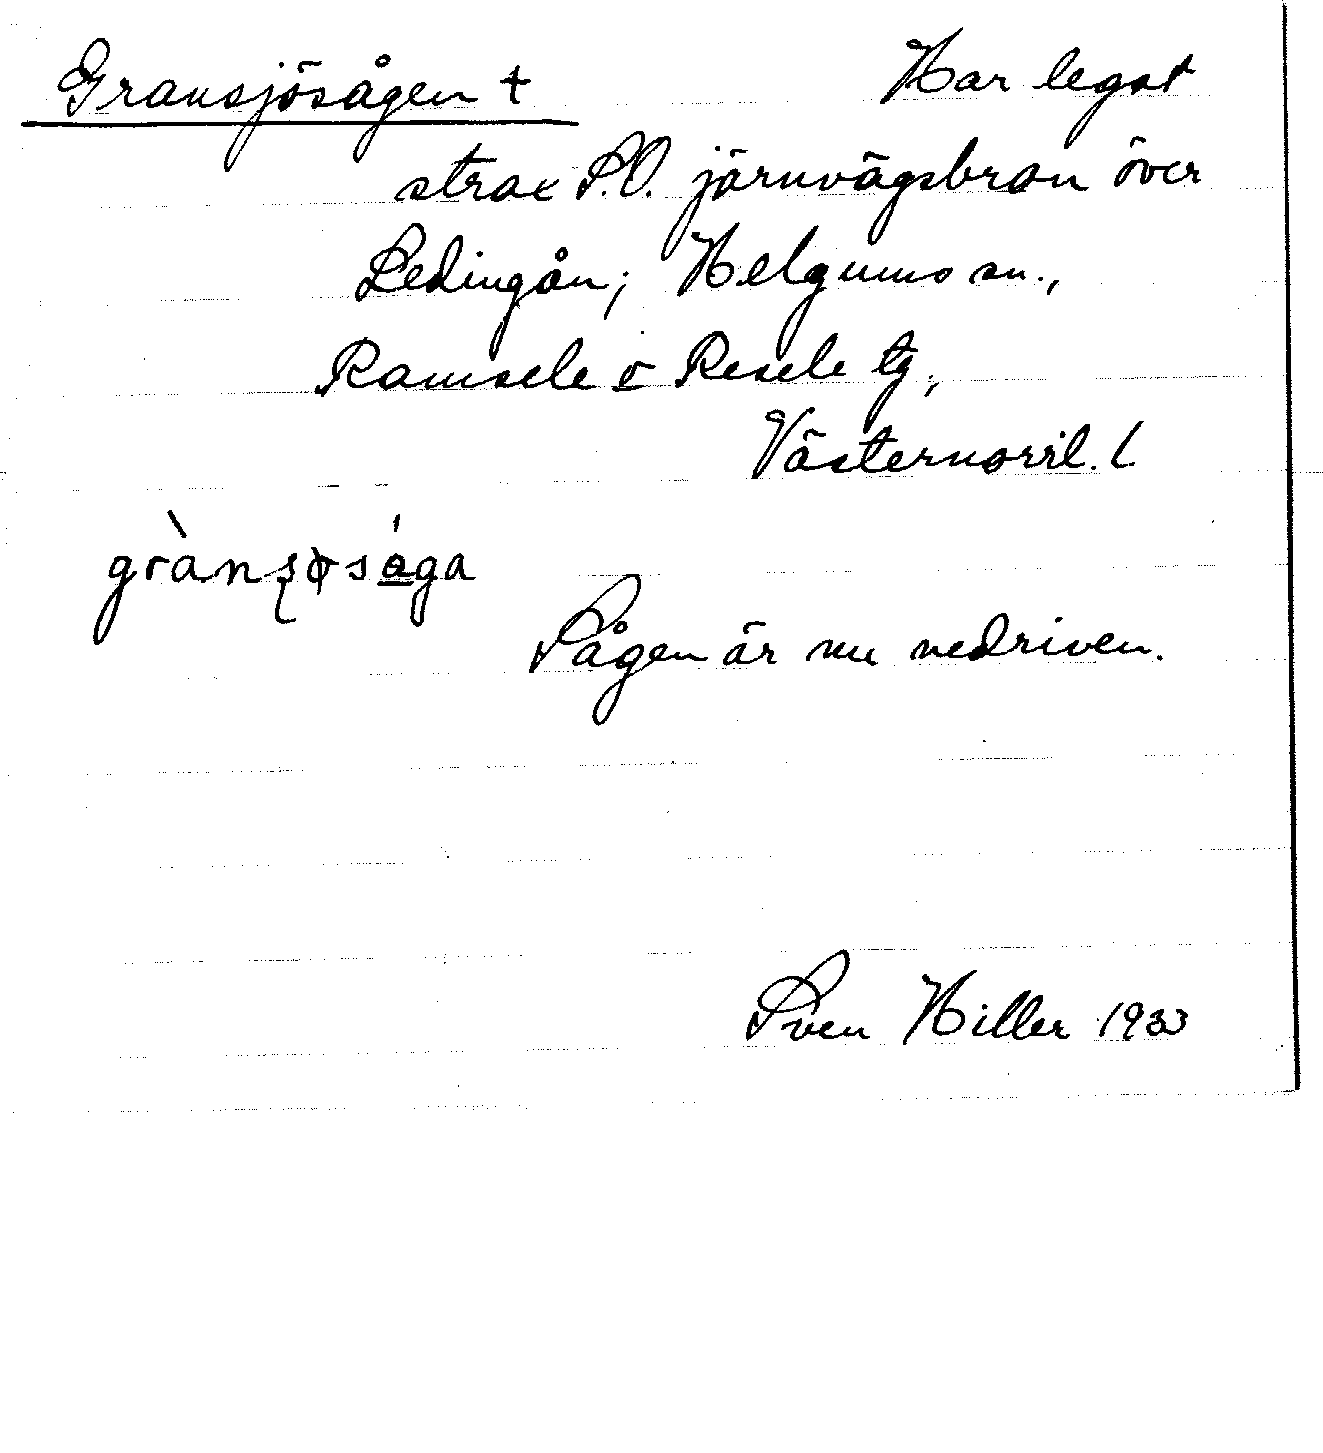 Gransjösågen † Har legat
strax S.O. järnvägsbron över
Ledingån; Helgums sn.,
Ramsele o Resele tg.,
Västernorrl. l.
Sågen är nu nedriven.
Sven Hiller 1933